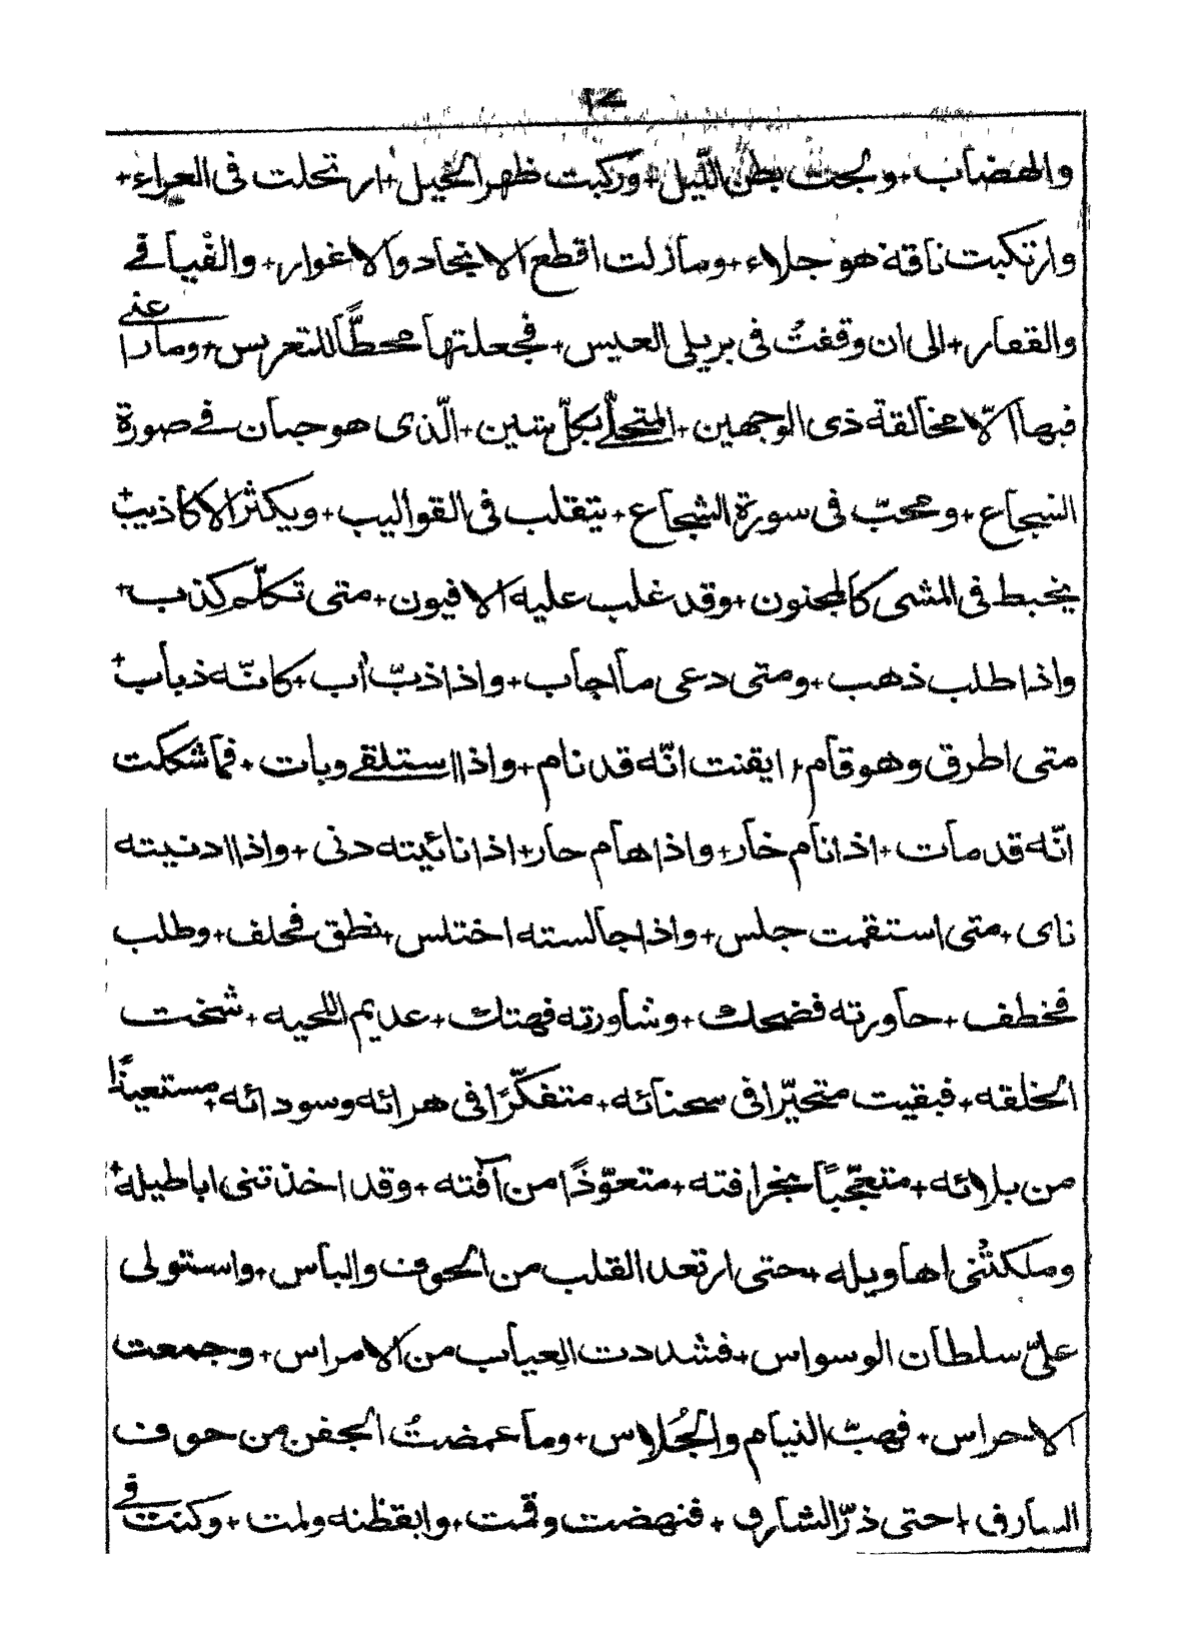 ١٢
والهضاب + ولجت بطن اللّيل + وركبت ظهر الخيل + ارتحلت فى العراء +
وارتكبت ناقة هوجلاء + ومازلت اقطع الانجاد والاغوار + والفيافے
والقفار + الى ان وقفتُ فى بريلى العيس + فجعلتها محطًّا للتعريس + وما راعنے
فيها الّا مخالقة ذى الوجهين + المتحلّے بكلّ شين + الّذى هو جبان فے صورة
الشجاع + ومحبّ فى سورة الشجاع + يتقلب فى القواليب + ويكثر الاكاذيب +
يخبط فى المشى كالمجنون + وقد غلب عليه الافيون + متى تكلّم كذب +
واذا طلب ذهب + ومتى دعى ما اجاب + واذا ذبّ اب + كانّه ذباب +
متى اطرق وهو قام + ايقنت انّه قد نام + واذا استلقے وبات + فما شككت
انّه قد مات + اذا نام خار + واذا هام حار + اذا نائيته دنى + واذا ادنيته
ناى + متى استقمت جلس + واذا جالسته اختلس + نطق فحلف + وطلب
فخطف + حاورته فضحك + وشاورته فهتك + عديم اللحيه + شخت
الخلقه + فبقيت متحيّرا فى سحنائه + متفكّرًا فى هرائه وسودائه + مستعينًا
من بلائه + متعجّبًا بخرافته + متعوّذًا من آفته + وقد اخذتنى اباطيله +
وملكتْنى اهاويله + حتى ارتعد القلب من الخوف والباس + واستولى
علىّ سلطان الوسواس + فشددت العياب من الامراس + وجمعت
الاحراس + فهبّ النيام والجُلاس + وما غمضتُ الجفن من خوف
السارق + حتى ذرّ الشارق + فنهضت وقمت + وايقظنه ولمت + وكنت فے